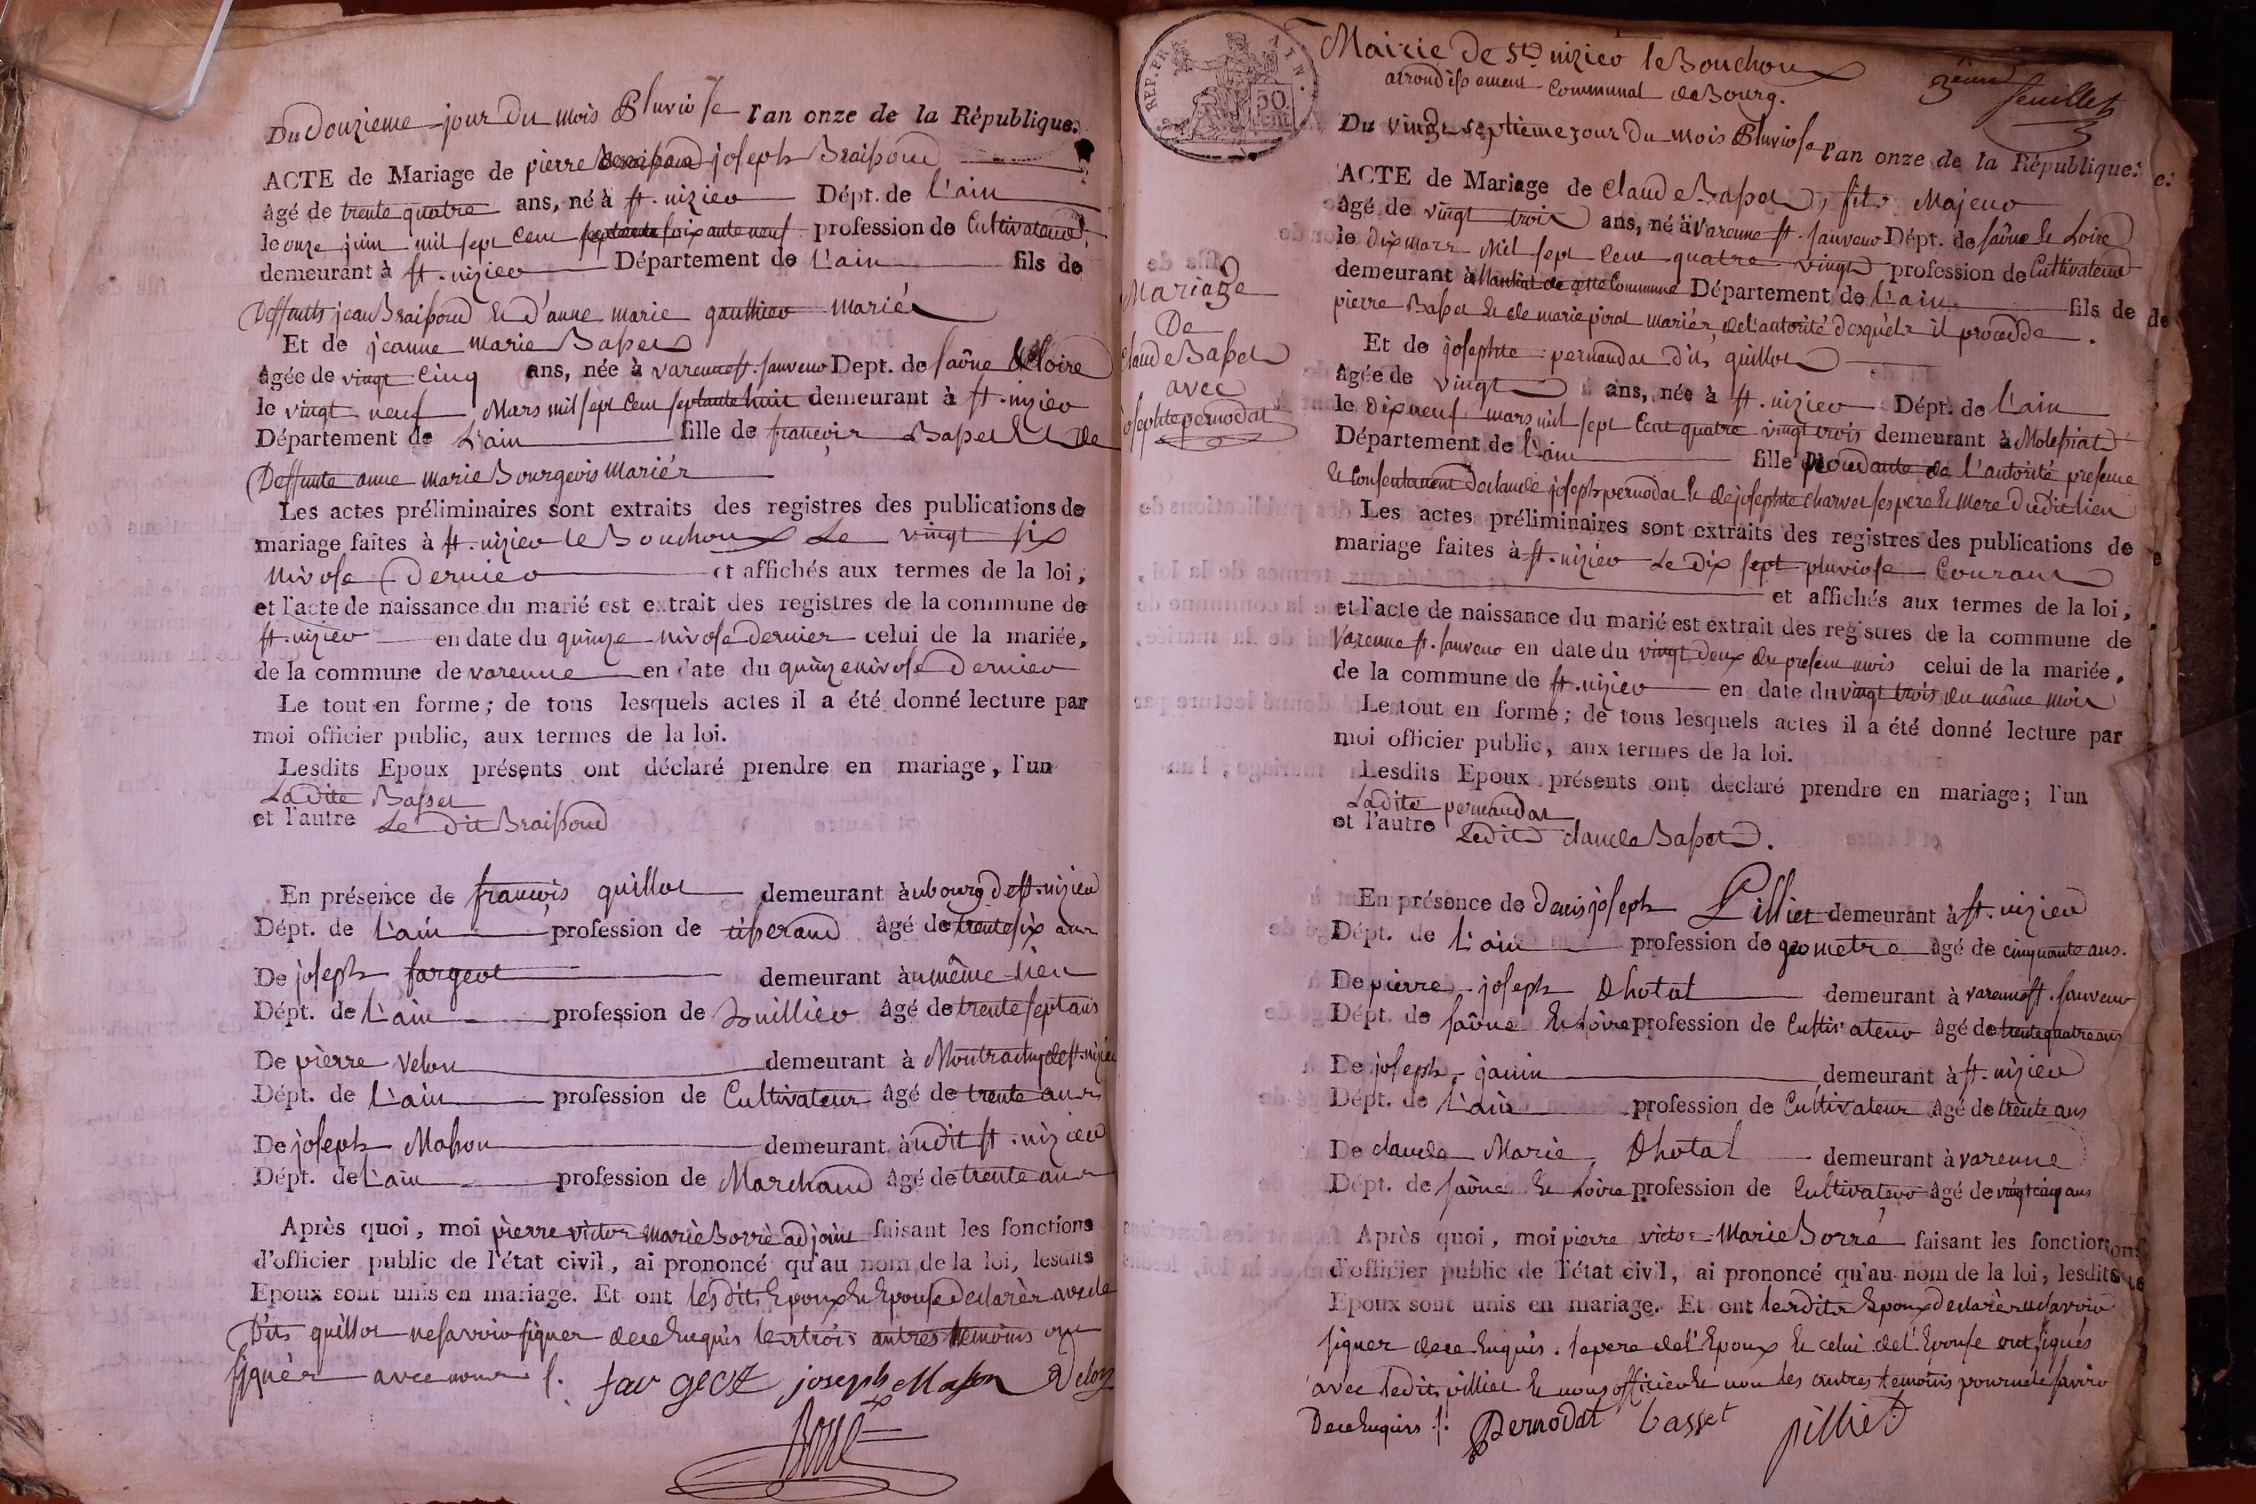 Du Douzieme jour du mois Pluviose l'an onze de la République.
ACTE de Mariage de pierre joseph Braissoud
âgé de trente quatre ans, né à st. nizier Dépt. de L'ain
le onze juin mil sept cent soixante neuf profession de Cultivateur
demeurant à st. nizier Département de L'ain fils de
Deffunts jean Braissoud et d'anne marie gauthier mariés
Et de jeanne marie Basset
âgée de vingt cinq ans, née à varenne st. sauveur Dept. de saône et Loire
le vingt neuf Mars mil sept cent septante huit demeurant à st. nizier
Département de L'ain fille de françois Basset Et De
Deffunte anne marie Bourgeois mariés
Les actes préliminaires sont extraits des registres des publications de
mariage faites à st. nizier le Bouchoux Le vingt six
nivose Dernier et affichés aux termes de la loi,
et l'acte de naissance du marié est extrait des registres de la commune de
st. nizier en date du quinze nivose dernier celui de la mariée,
de la commune de varenne en date du quinze nivose Dernier
Le tout en forme; de tous lesquels actes il a été donné lecture par
moi officier public, aux termes de la loi.
Lesdits Epoux présents ont déclaré prendre en mariage, l'un
Ladite Basset
et l'autre Le dit Braissoud
En présence de françois guillot demeurant au bourg de st. nizier
Dépt. de L'ain profession de tisserand âgé de trente six ans
De joseph fargeot demeurant au même lieu
Dépt. de L'ain profession de huillier âgé de trente sept ans
De pierre Velon demeurant à st. nizier
Dépt. de L'ain profession de Cultivateur âgé de trente ans
De joseph Masson demeurant audit st. nizier
Dépt. de L'ain profession de Marchand âgé de trente ans
Après quoi, moi pierre victor marie Borré adjoint faisant les fonctions
d'officier public de l'état civil, ai prononcé qu'au nom de la loi, lesdits
Epoux sont unis en mariage. Et ont les dits Epoux Et Epouse Declarér avec le
Dits guillot ne savoir signer de ce Enquis les trois autres temoins ont
signér avec nous
fargeot joseph Masson
Borré
REP. FRA
50
cent
Mairie de St. nizier le Bouchoux
arrondissement Communal de Bourg.
3eme feuillet
Du vingt septième jour du mois Pluviose l'an onze de la République.
ACTE de Mariage de Claude Basset, fils Majeur
âgé de vingt trois ans, né à Varenne st. sauveur Dépt. de saône et Loire
le dix mars Mil sept cent quatre vingt profession de Cultivateur
demeurant à de cette Commune Département de L'ain fils de
pierre Basset Et de marie piroud mariés, de l'autorité desquels il procede.
Et de josephte pernaudat dits guillot
âgée de vingt ans, née à st. nizier Dépt. de L'ain
le Dix neuf mars mil sept cent quatre vingt trois demeurant à Molissiat
Département de L'ain fille procedante de l'autorité presence
et Consentement De claude joseph pernodat et de josephte charvet ses pere et mere Du dit lieu
Les actes préliminaires sont extraits des registres des publications de
mariage faites à st. nizier Le dix sept pluviose Courant
et affichés aux termes de la loi,
et l'acte de naissance du marié est extrait des registres de la commune de
Varenne st. sauveur en date du vingt deux du present mois celui de la mariée,
de la commune de st. nizier en date du vingt trois du même mois
Le tout en forme; de tous lesquels actes il a été donné lecture par
moi officier public, aux termes de la loi.
Lesdits Epoux présents ont déclaré prendre en mariage; l'un
Ladite pernaudat
et l'autre Ledit claude Basset.
En présence de Denis joseph Pilliet demeurant à st. nizier
Dépt. de L'ain profession de geometre âgé de cinquante ans.
De pierre joseph Dhotal demeurant à varenne st. sauveur
Dépt. de saône et Loire profession de Cultivateur âgé de trente quatre ans
De joseph janin demeurant à st. nizier
Dépt. de L'ain profession de Cultivateur âgé de trente ans
De claude Marie Dhotal demeurant à varenne
Dépt. de saône et Loire profession de Cultivateur âgé de vingt cinq ans
Après quoi, moi pierre victor Marie Borré faisant les fonctions
d'officier public de l'état civil, ai prononcé qu'au nom de la loi, lesdits
Epoux sont unis en mariage. Et ont lesdits Epoux declarér ne savoir
signer de ce Enquis. le pere de l'Epoux et celui de l'Epouse ont signés
avec ledit pilliet et nous officier et non les autres temoins pour ne le savoir
De ce Enquis Pernodat basset pilliet
Mariage
De
Claude Basset
avec
josephte pernodat